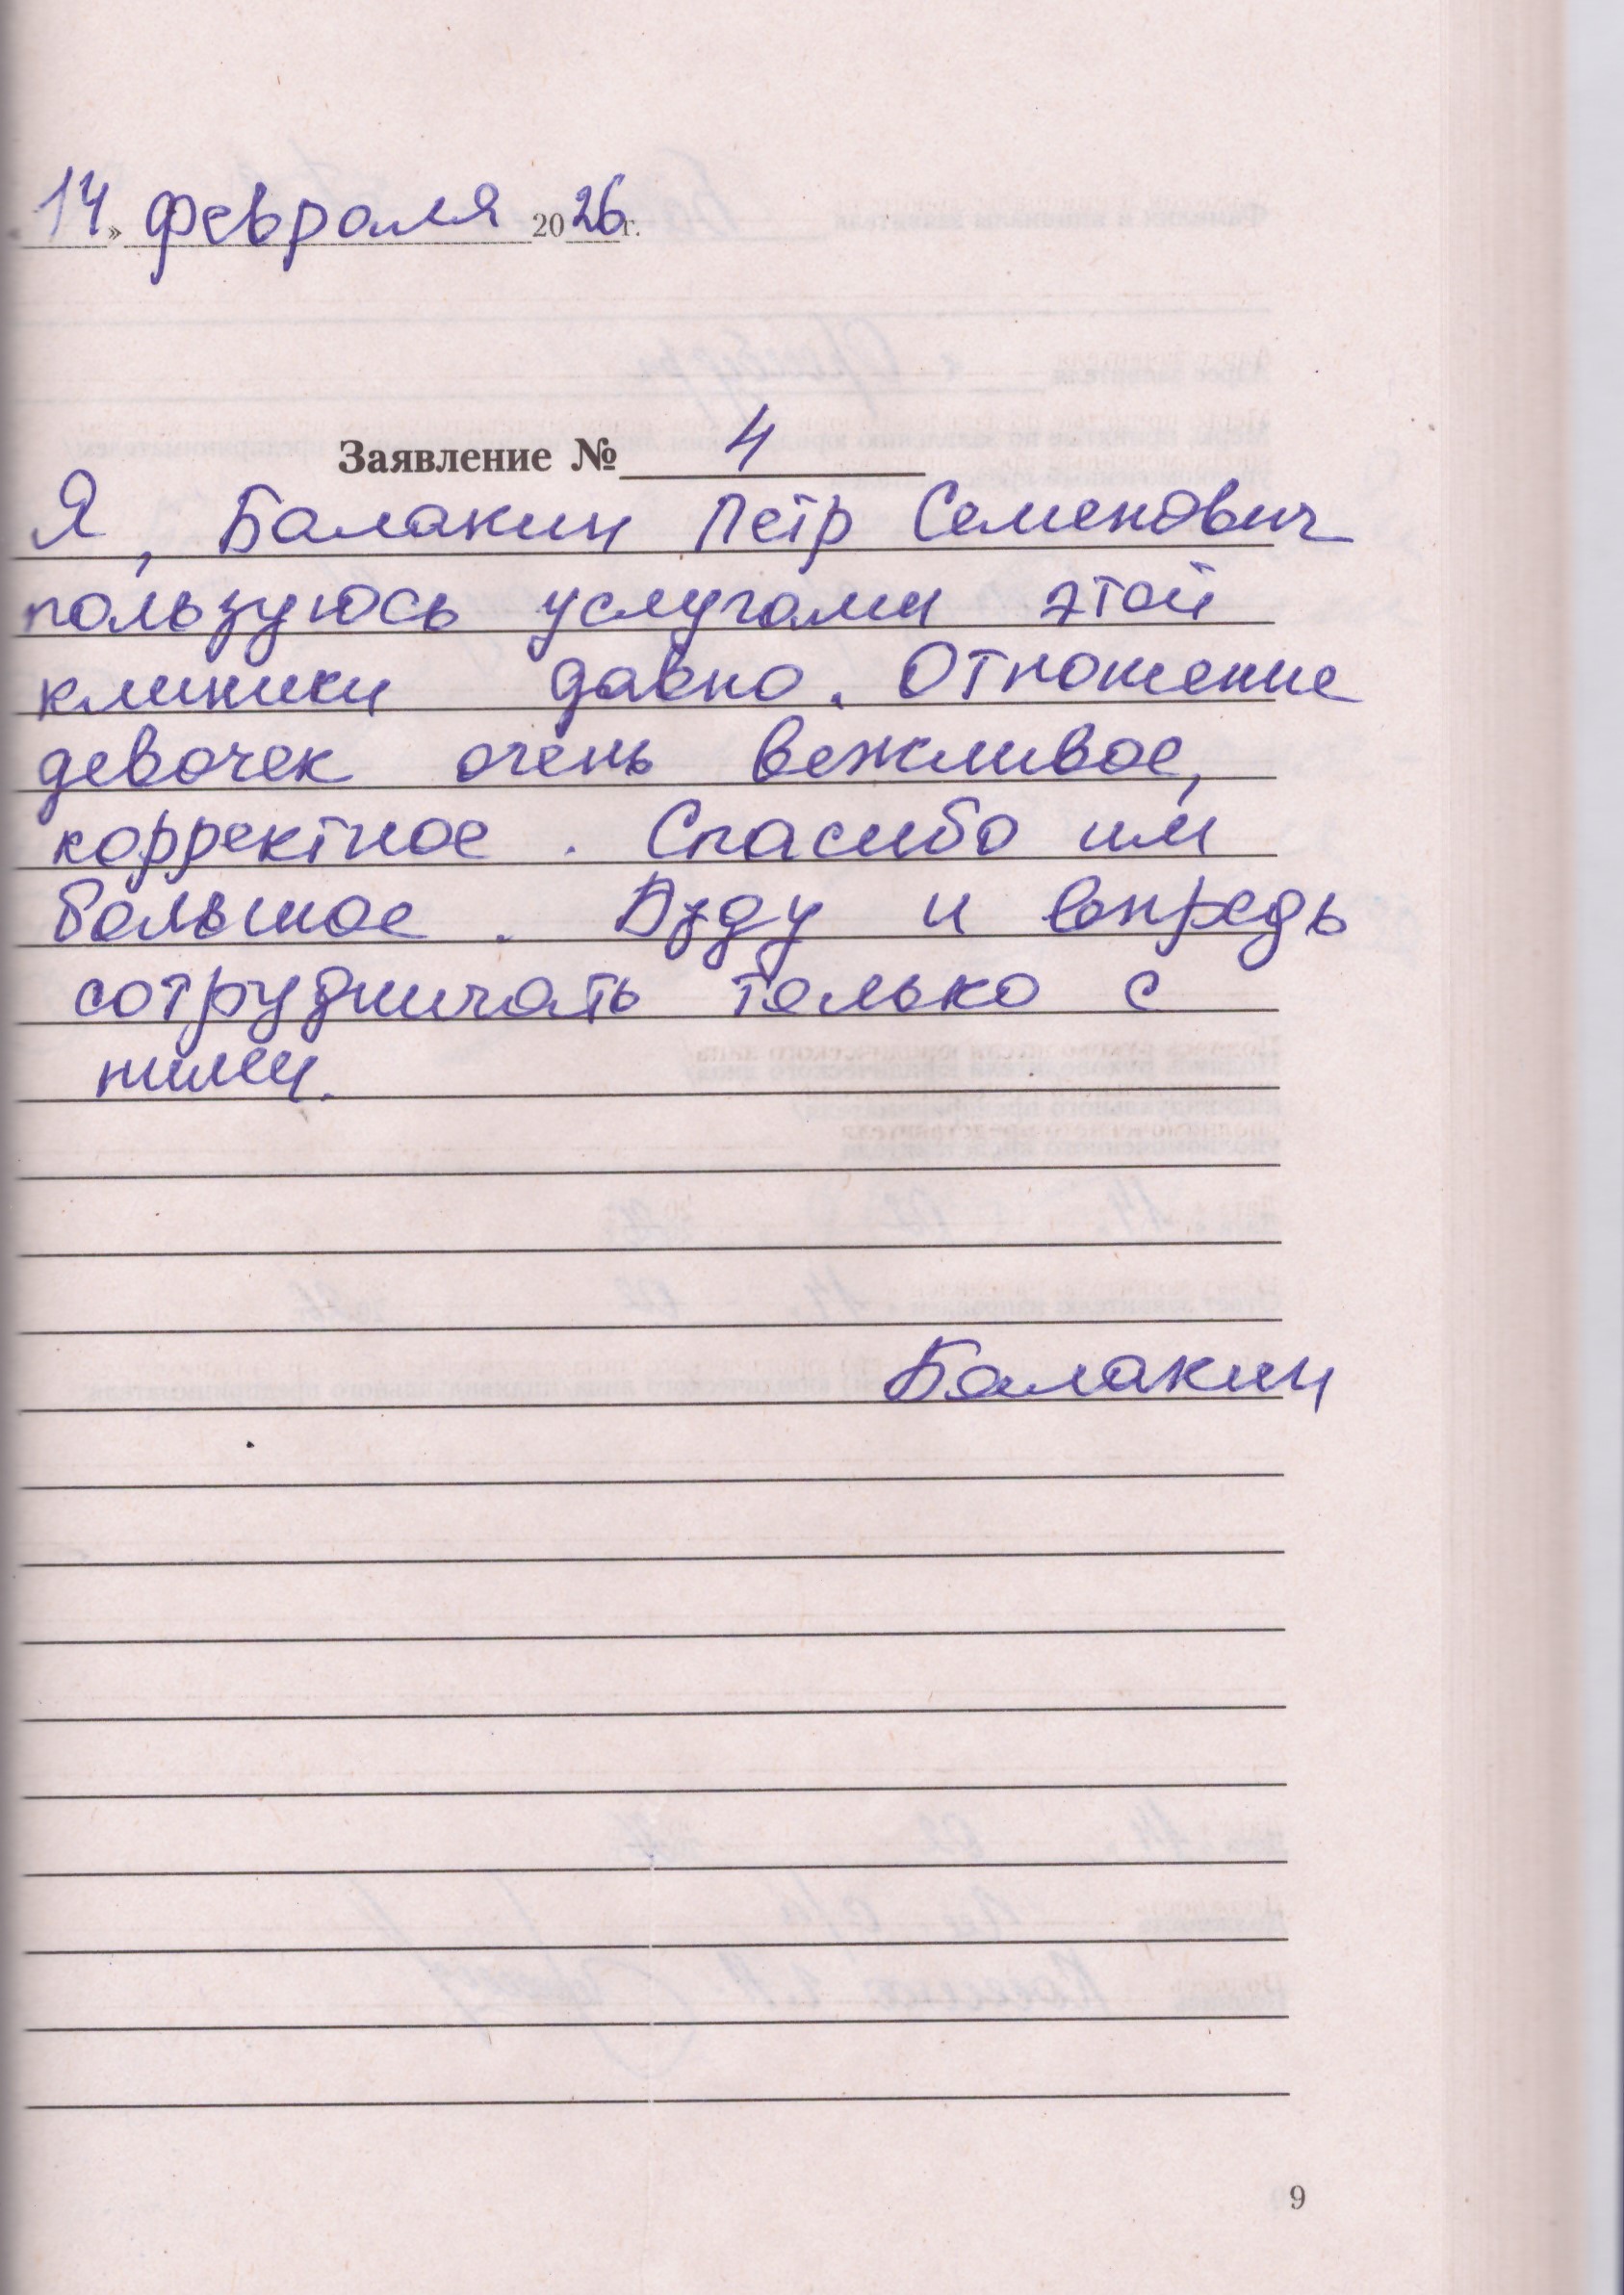 14» февраля 2026г.
Заявление № 4
Я, Балакин Петр Семенович
пользуюсь услугами этой
клиники давно. Отношение
девочек очень вежливое,
корректное. Спасибо им
большое. Буду и впредь
сотрудничать только с
ними.
Балакин
9